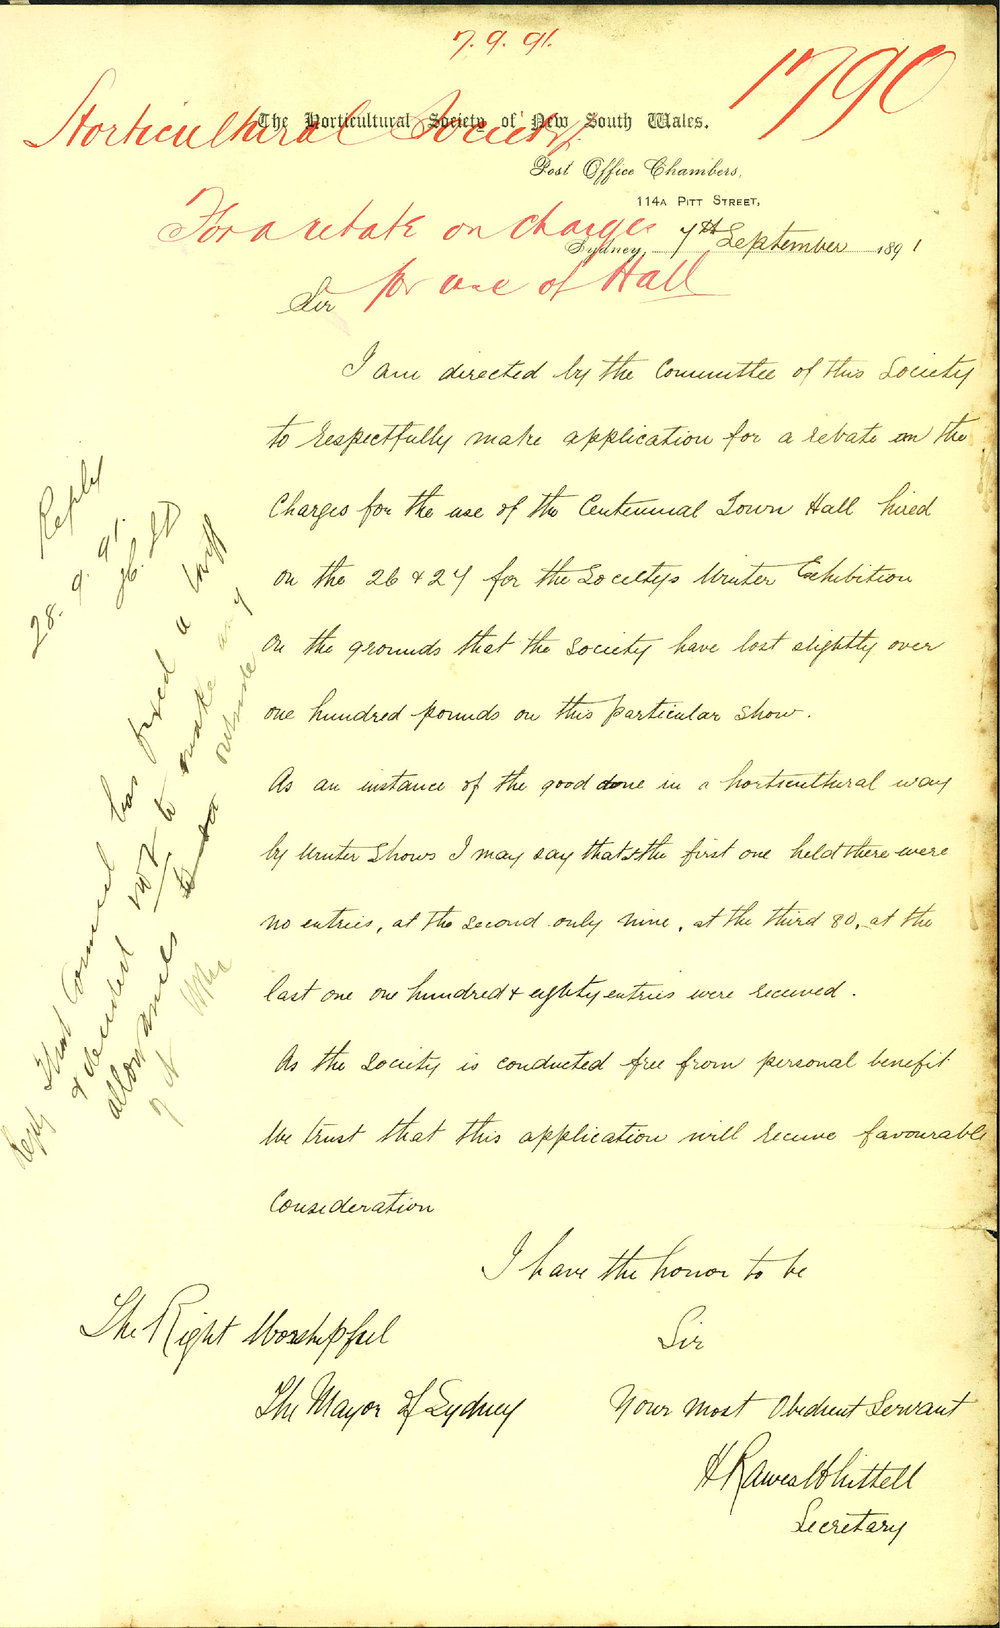 7.9.91.
1790
Horticultural Society
The Horticultural Society of New South Wales.
Post Office Chambers,
114A Pitt Street,
For a rebate on charges
Sydney, 7th September 1891
for use of Hall
Sir
I am directed by the Committee of this Society
to respectfully make application for a rebate on the
Charges for the use of the Centennial Town Hall hired
on the 26 & 27 for the Societys Winter Exhibition
on the grounds that the Society have lost slightly over
one hundred pounds on this particular show.
As an instance of the good done in a horticultural way
by Winter Shows I may say that at the first one held there were
no entries, at the second only nine, at the third 80, at the
last one one hundred & eighty entries were received.
As the Society is conducted free from personal benefit
We trust that this application will receive favourable
Consideration
I have the honor to be
Sir
Your most Obedient Servant
H Rawes Whittell
Secretary
The Right Worshipful
The Mayor of Sydney
Reply
28.9.91.
Reply that Council has fixed a tariff
& decided not to make any
allowances outside
of it